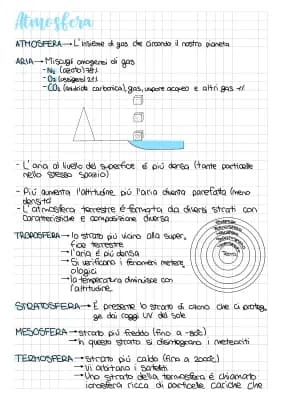 Atmosfera
ATMOSFERA → L'insieme di gas che circonda il nostro pianeta
ARIA → Miscugli omogenei di gas
- N₂ (azoto) 78%
- O₂ (ossigeno) 21%
- CO₂ (anidride carbonica), gas, vapore acqueo e altri gas 1%
- L'aria al livello del superficie é più densa (tante particelle
nello stesso spazio)
- Più aumenta l'altitudine, più l'aria diventa rarefatta (meno
densità)
- L'atmosfera terrestre é formata da diversi strati con
caratteristiche e composizione diversa
TROPOSFERA → lo strato più vicino alla super
ficie terrestre
→ l'aria é più densa
→ Si verificano i fenomeni metere
ologici
→ la temperatura diminuisce con
l'altitudine
Terra
STRATOSFERA → É presente lo strato di ozono che ci proteg
ge dai raggi UV del sole
MESOSFERA → strato più freddo (fino a -80°C)
→ In questo strato si disintegrano i meteoriti
TERMOSFERA → Strato più caldo (fino a 2000°C)
→ Vi orbitano i satelliti
→ Uno strato della termosfera é chiamato
ionosfera ricca di particelle cariche che